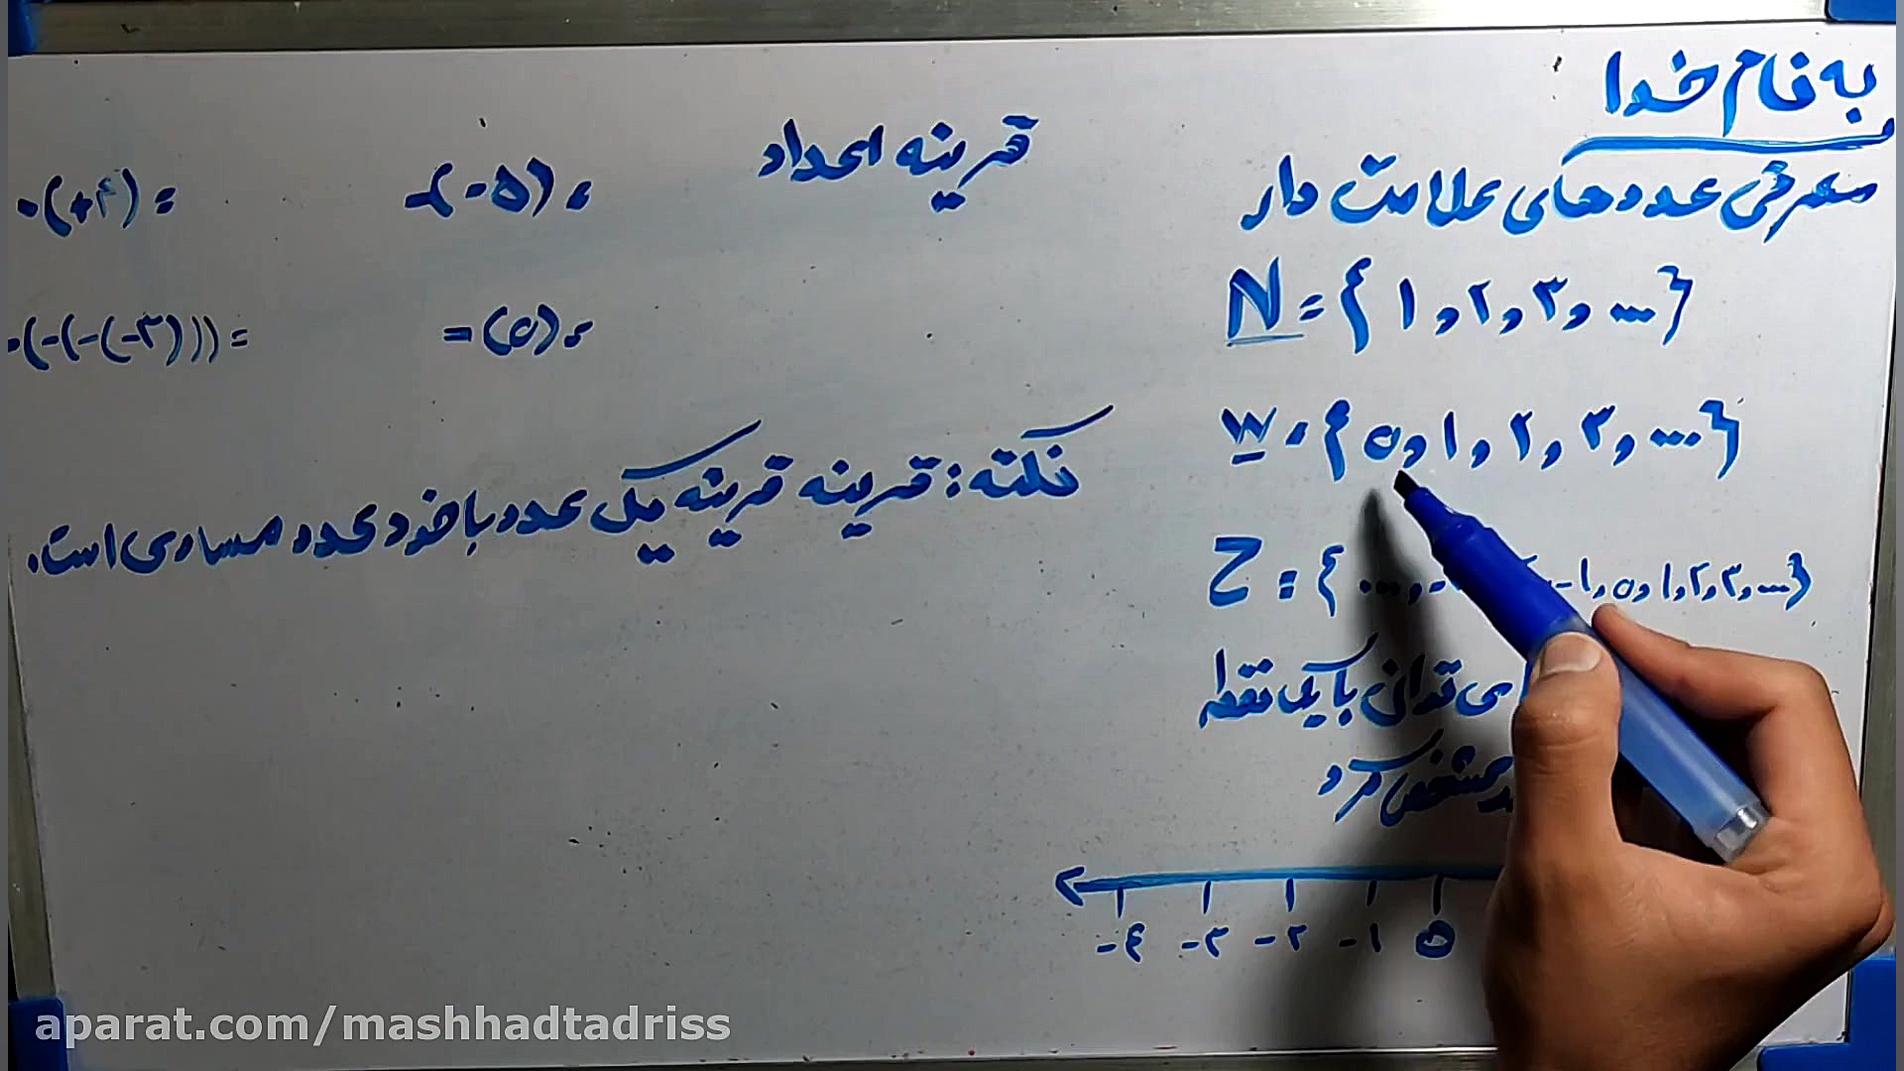 به نام خدا
معرفی عددهای علامت دار
N = { ۱, ۲, ۳, ... }
W = { ۰, ۱, ۲, ۳, ... }
Z = { ..., - -۱, ۰, ۱, ۲, ۳, ... }
می توان با یک نقطه
مشخص کرد
-۴ -۳ -۲ -۱ ۰
قرینه اعداد
-(-۵) =
-(+۴) =
-(۰) =
-(-(-(-۳))) =
نکته: قرینه قرینه یک عدد با خود عدد مساوی است.
aparat.com/mashhadtadriss